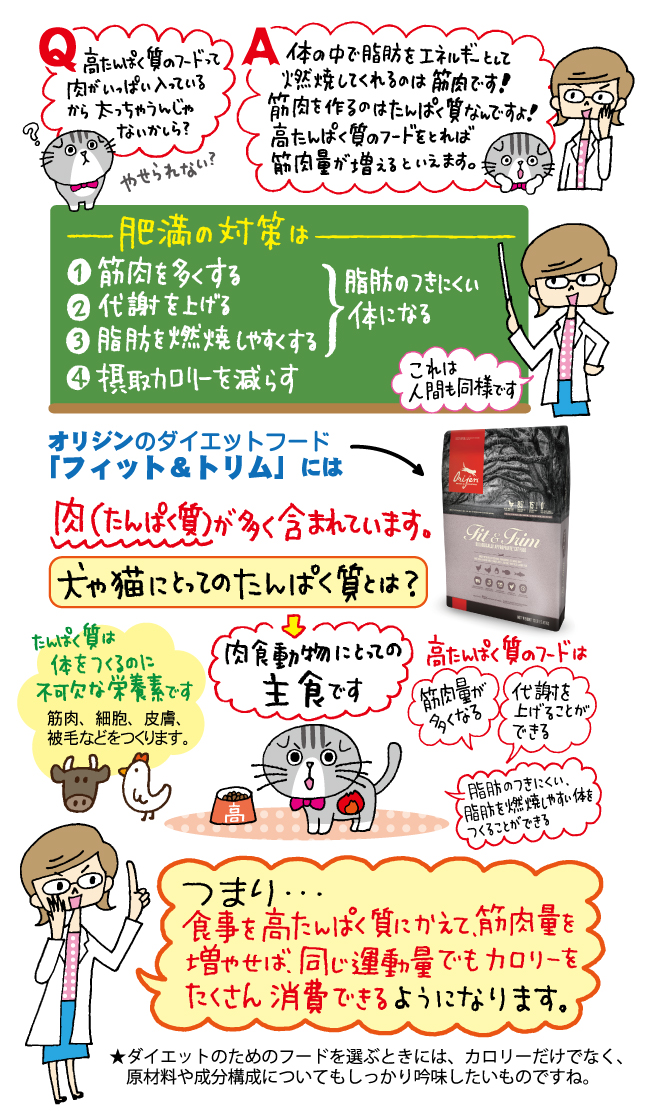 Q 高たんぱく質のフードって
肉がいっぱい入っている
から太っちゃうんじゃ
ないかしら？
やせられない？
A 体の中で脂肪をエネルギーとして
燃焼してくれるのは筋肉です！
筋肉を作るのはたんぱく質なんですよ！
高たんぱく質のフードをとれば
筋肉量が増えるといえます。
肥満の対策は
① 筋肉を多くする
② 代謝を上げる
③ 脂肪を燃焼しやすくする
④ 摂取カロリーを減らす
脂肪のつきにくい
体になる
これは
人間も同様です
オリジンのダイエットフード
「フィット＆トリム」には
肉(たんぱく質)が多く含まれています。
Orijen
Fit & Trim
犬や猫にとってのたんぱく質とは？
たんぱく質は
体をつくるのに
不可欠な栄養素です
筋肉、細胞、皮膚、
被毛などをつくります。
肉食動物にとっての
主食です
高
高たんぱく質のフードは
筋肉量が
多くなる
代謝を
上げることが
できる
脂肪のつきにくい、
脂肪を燃焼しやすい体を
つくることができる
つまり・・・
食事を高たんぱく質にかえて、筋肉量を
増やせば、同じ運動量でもカロリーを
たくさん消費できるようになります。
★ダイエットのためのフードを選ぶときには、カロリーだけでなく、
原材料や成分構成についてもしっかり吟味したいものですね。